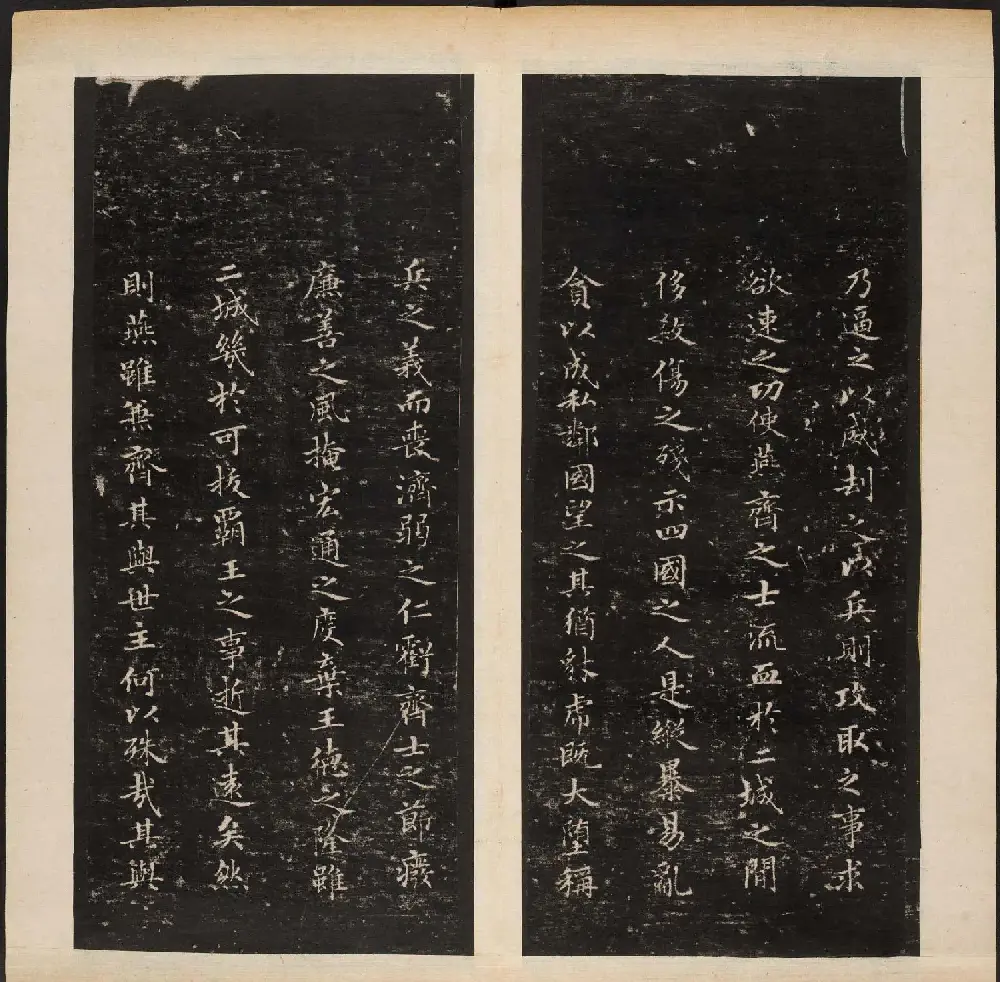 乃逼之以威劫之以兵則攻取之事求
欲速之功使燕齊之士流血於二城之間
侈殺傷之殘示四國之人是縱暴易亂
貪以成私鄰國望之其猶豺虎既大墮稱
兵之義而喪濟弱之仁虧齊士之節癈
廉善之風掩宏通之度棄王德之隆雖
二城幾於可拔霸王之事逝其遠矣然
則燕雖兼齊其與世主何以殊哉其與